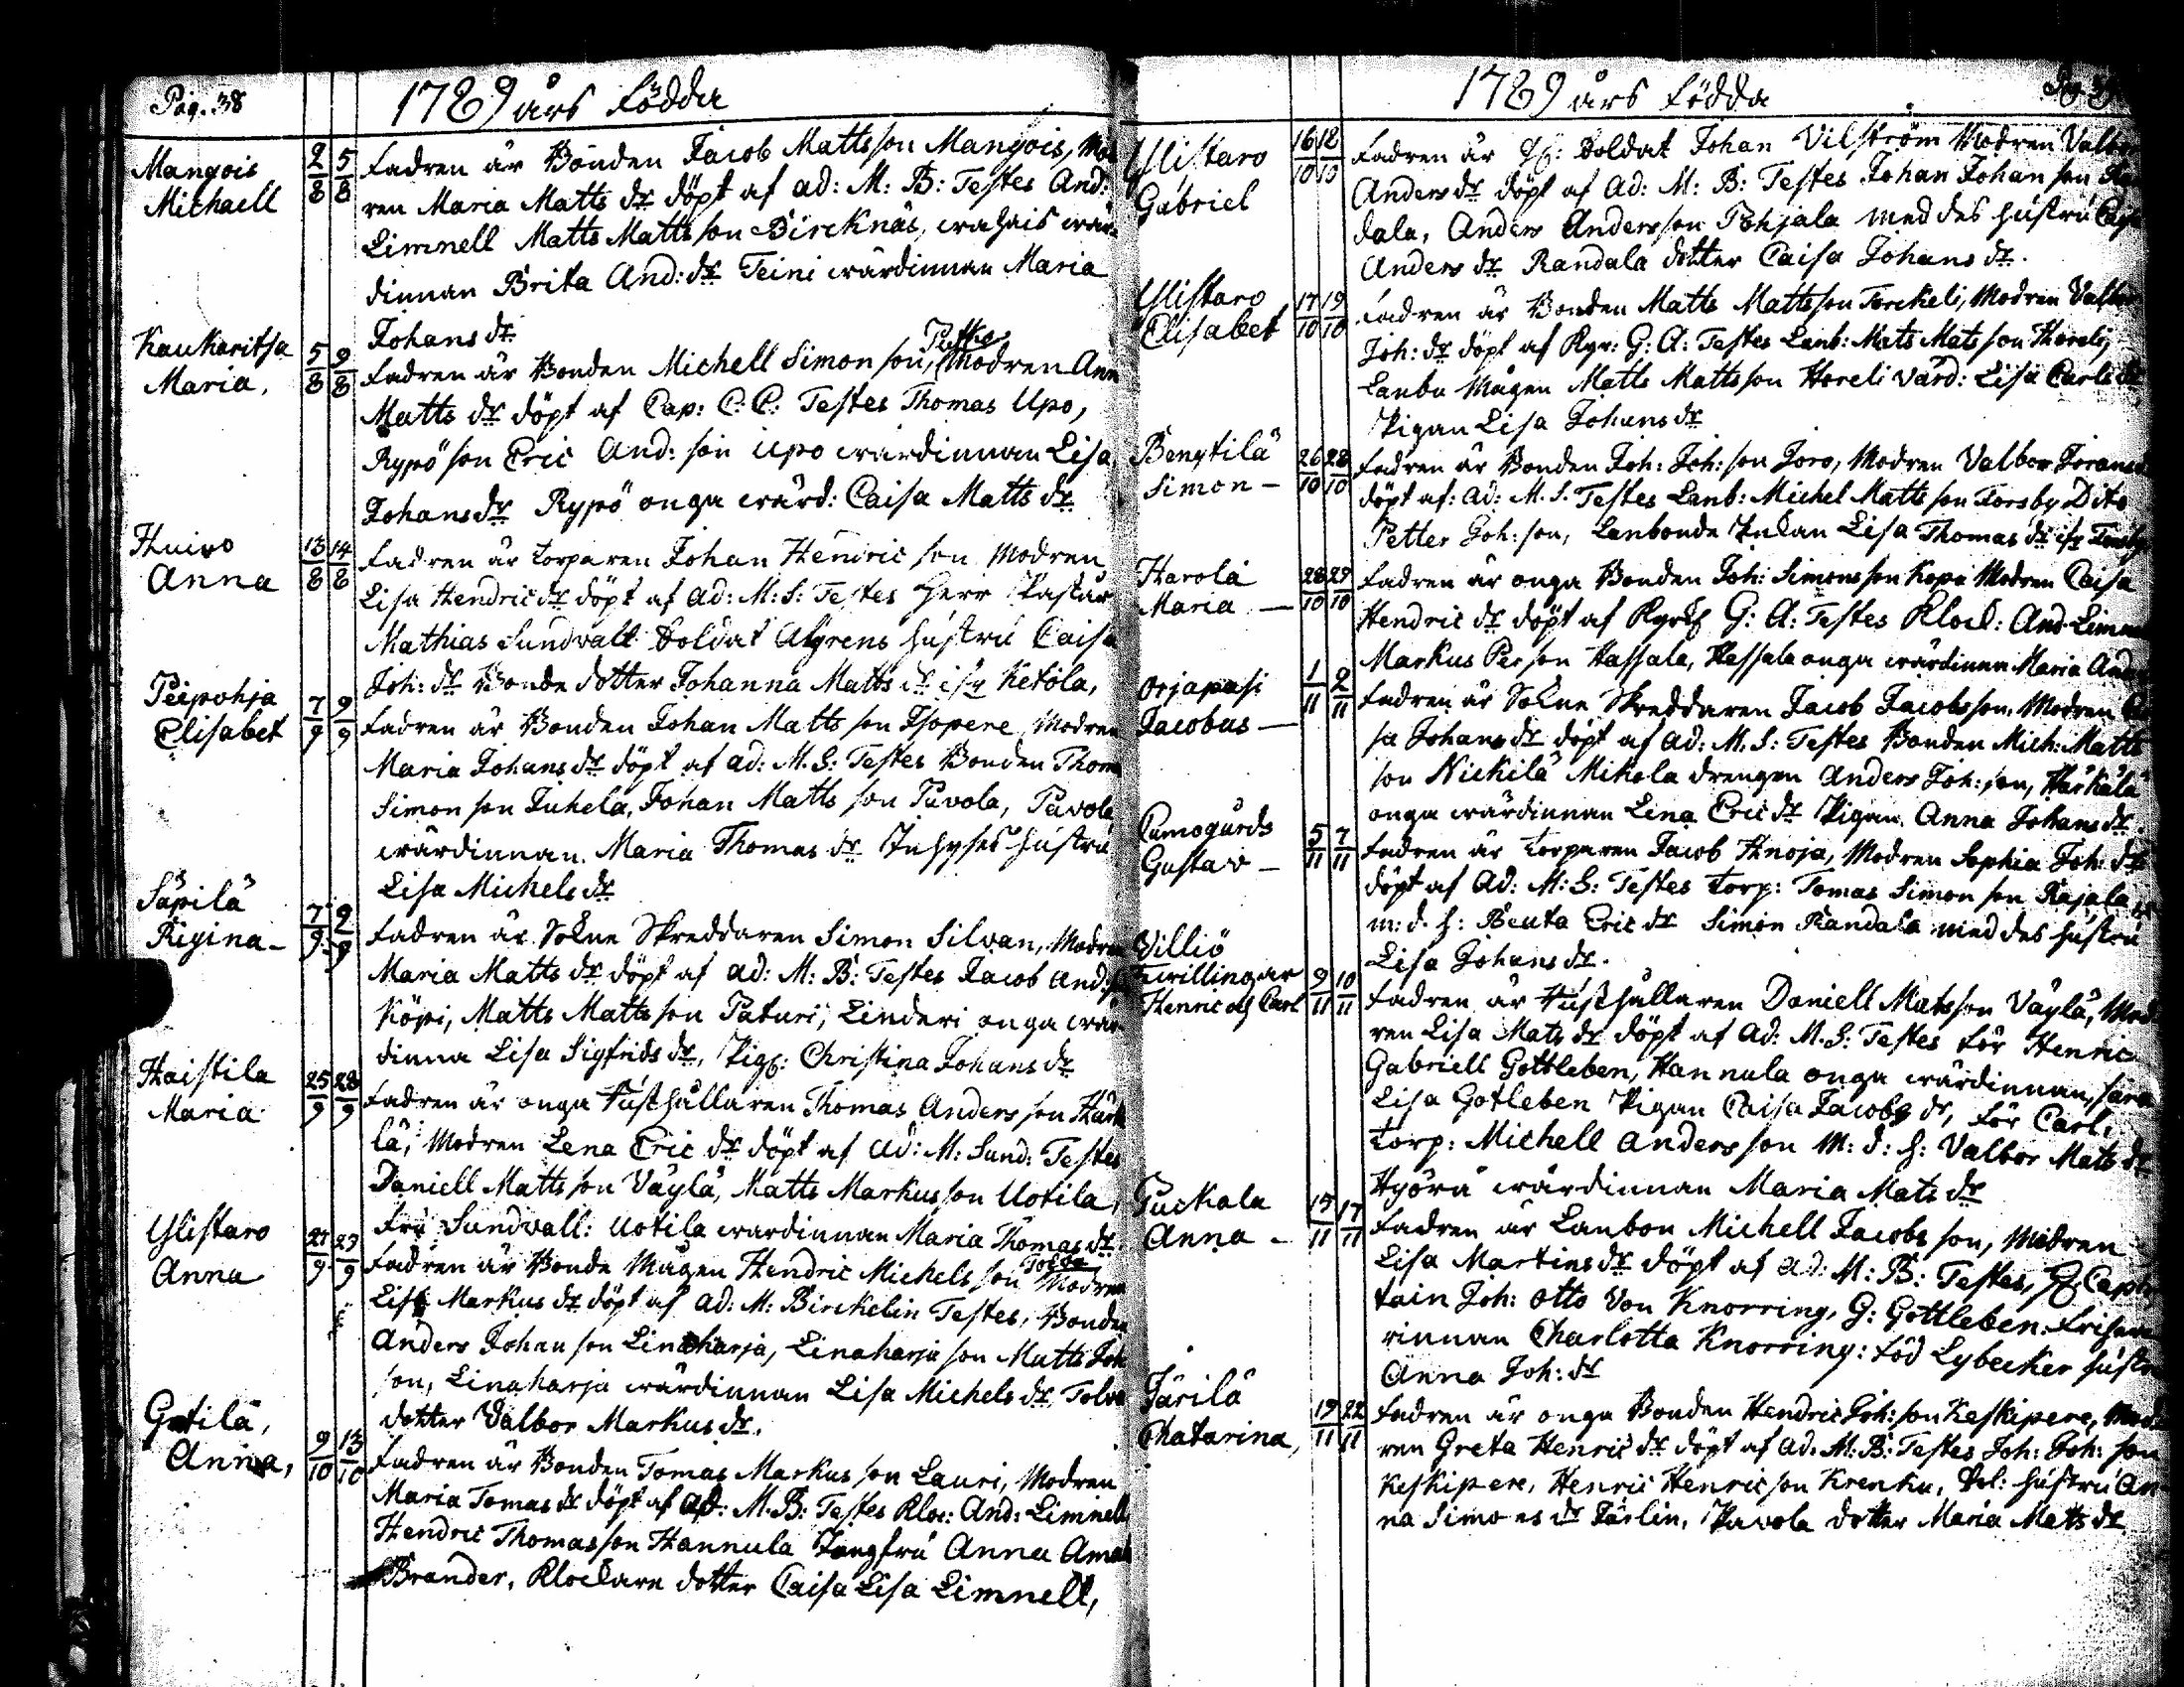 Pag. 38
1789 års Födda
Mangois
Michaell
2/8 5/8
Fadren är Bonden Jacob Mattsson Mangois, Mod
ren Maria Matts dr döpt af ad: M: B: Testes And:
Limnell Matts Mattsson Bircknäs, wrahais wär-
dinnan Brita And: dr Teini wärdinnan Maria
Johans dr
Kaukaritsa
Maria,
5/8 9/8
Fadren är Bonden Michell Simonson, Modren Ann
Matts dr döpt af Cap: C: C: Testes Thomas Upo,
Rypö son Eric And: son Upo wärdinnan Lisa
Johans dr Rypö onga wärd: Caisa Matts dr
Anna
13/8 14/8
Fadren är torparen Johan Hendric son Modren
Lisa Hendric dr döpt af ad: M: S: Testes Herr Pastur
Mathias Sundvall Soldat Algrens hustru Caisa
Joh: dr Bonde dotter Johanna Matts dr ifr Ketola,
Peipohja
Elisabet
7/9 9/9
Fadren är Bonden Johan Matts son Isopere Modren
Maria Johans dr döpt af ad: M. S: Testes Bonden Thom
Simonson Juhela, Johan Matts son Pavola, Pavola
wärdinnan. Maria Thomas dr Inhyses hustru
Lisa Michels dr
Säpilä
Rigina -
7/9 9/9
Fadren är Sokne Skreddaren Simon Silvan, Modren
Maria Matts dr döpt af ad: M: B: Testes Jacob And:
Köpi, Matts Mattsson Paturi, Linderi onga wär-
dinna Lisa Sigfrids dr, Pig: Christina Johans dr
Haistila
Maria
25/9 28/9
Fadren är onga Rusthållaren Thomas Anders son Härk
lä, Modren Lena Eric dr döpt af ad: M: Sund: Testes
Daniell Mattsson Väylä, Matts Markusson Uotila,
Fru Sundvall: Uotila wärdinnan Maria Thomas dr
Ylistaro
Anna
27/9 29/9
Fadren är Bonde Mågen Hendric Michels son Tolva Modren
Lisa Markus dr döpt af ad: M: Birckelin Testes, Bonden
Anders Johansson Linaharja, Linaharja son Matts Joh
son, Linaharja wärdinnan Lisa Michels dr, Tolva
dotter Valbor Markus dr,
Anna,
9/10 13/10
Fadren är Bonden Tomas Markus son Lauri, Modren
Maria Tomas dr döpt af ad: M. B: Testes Kloc: And: Limnell
Hendric Thomasson Hannula Jungfru Anna Ama
Brander, Klockare dotter Caisa Lisa Limnell,
1789 års Födda
Ylistaro
Gabriel
16/10 18/10
Fadren är Soldat Johan Vilström Modren Valbor
Anders dr döpt af ad: M: B: Testes Johan Johanson Ran
dala, Anders Andersson Pohjala med des hustru Caisa
Anders dr Randala dotter Caisa Johans dr.
Ylistaro
Elisabet
17/10 19/10
Fadren är Bonden Matts Mattsson Torckeli, Modren Valbor
Joh: dr döpt af Kyr: G: A: Testes Lanb: Mats Mats son Horeli,
Lanbo Mågen Matts Mattsson Horeli Värd: Lisa Carls dr
Pigan Lisa Johans dr
Bengtilä
Simon -
26/10 28/10
Fadren är Bonden Joh: Joh: son Joro, Modren Valbor Jörans
döpt af: ad: M. S. Testes Lanb: Michel Mattsson Forsby Dito
Petter Joh: son, Lanbonde Enkan Lisa Thomas dr ifr Forsby
Harola
Maria -
28/10 29/10
Fadren är onga Bonden Joh: Simonsson Kopa Modren Caisa
Hendric dr döpt af G: A: Testes Klock: And Limnell
Markus Person Hassala, Hassala onga wärdinnan Maria And
Orjapasi
Jacobus -
1/11 2/11
Fadren är Sokne Skreddaren Jacob Jacobsson. Modren Cai
sa Johans dr döpt af ad: M. S: Testes Bonden Mich: Matts
son Nickilä Mikola drengen Anders Joh: son, Harkälä
onga wärdinnan Lena Eric dr Pigan Anna Johans dr.
Cumogårds
Gustav -
5/11 7/11
Fadren är torparen Jacob Knoja, Modren Sophia Joh: dr
döpt af ad: M: S: Testes torp: Tomas Simonson Rajala
m: d. h: Beata Eric dr Simon Randala med des hustru
Lisa Johans dr.
Villiö
Twillingar
Henric och Carl
9/11 10/11
Fadren är Rusthållaren Daniell Matsson Väylä, Mod
ren Lisa Mats dr döpt af ad: M. S: Testes för Henric
Gabriell Gottleben, Hannula onga wärdinnan, Sara
Lisa Gotleben Pigan Caisa Jacobs dr, för Carl.
torp: Michell Andersson M: d: h: Valbor Mats dr
Hyörä wärdinnan Maria Mats dr
Puckala
Anna -
15/11 17/11
Fadren är Lanbon Michell Jacobs son, Modren
Lisa Martins dr döpt af ad: M: B: Testes, H: Capi
tain Joh: Otto Von Knorring, G: Gottleben: Friher
rinnan Charlotta Knorring: född Lybecker hustru
Anna Joh: dr
Järilä
Chatarina,
19/11 22/11
Fadren är onga Bonden Hendric Joh: son Keskipere, Mod
ren Greta Henric dr döpt af ad. M: B: Testes Joh: Joh: son
Keskipere, Henric Henricson Krenku, Sol: hustru An
na Simons dr Järlin, Pavola dotter Maria Mats dr